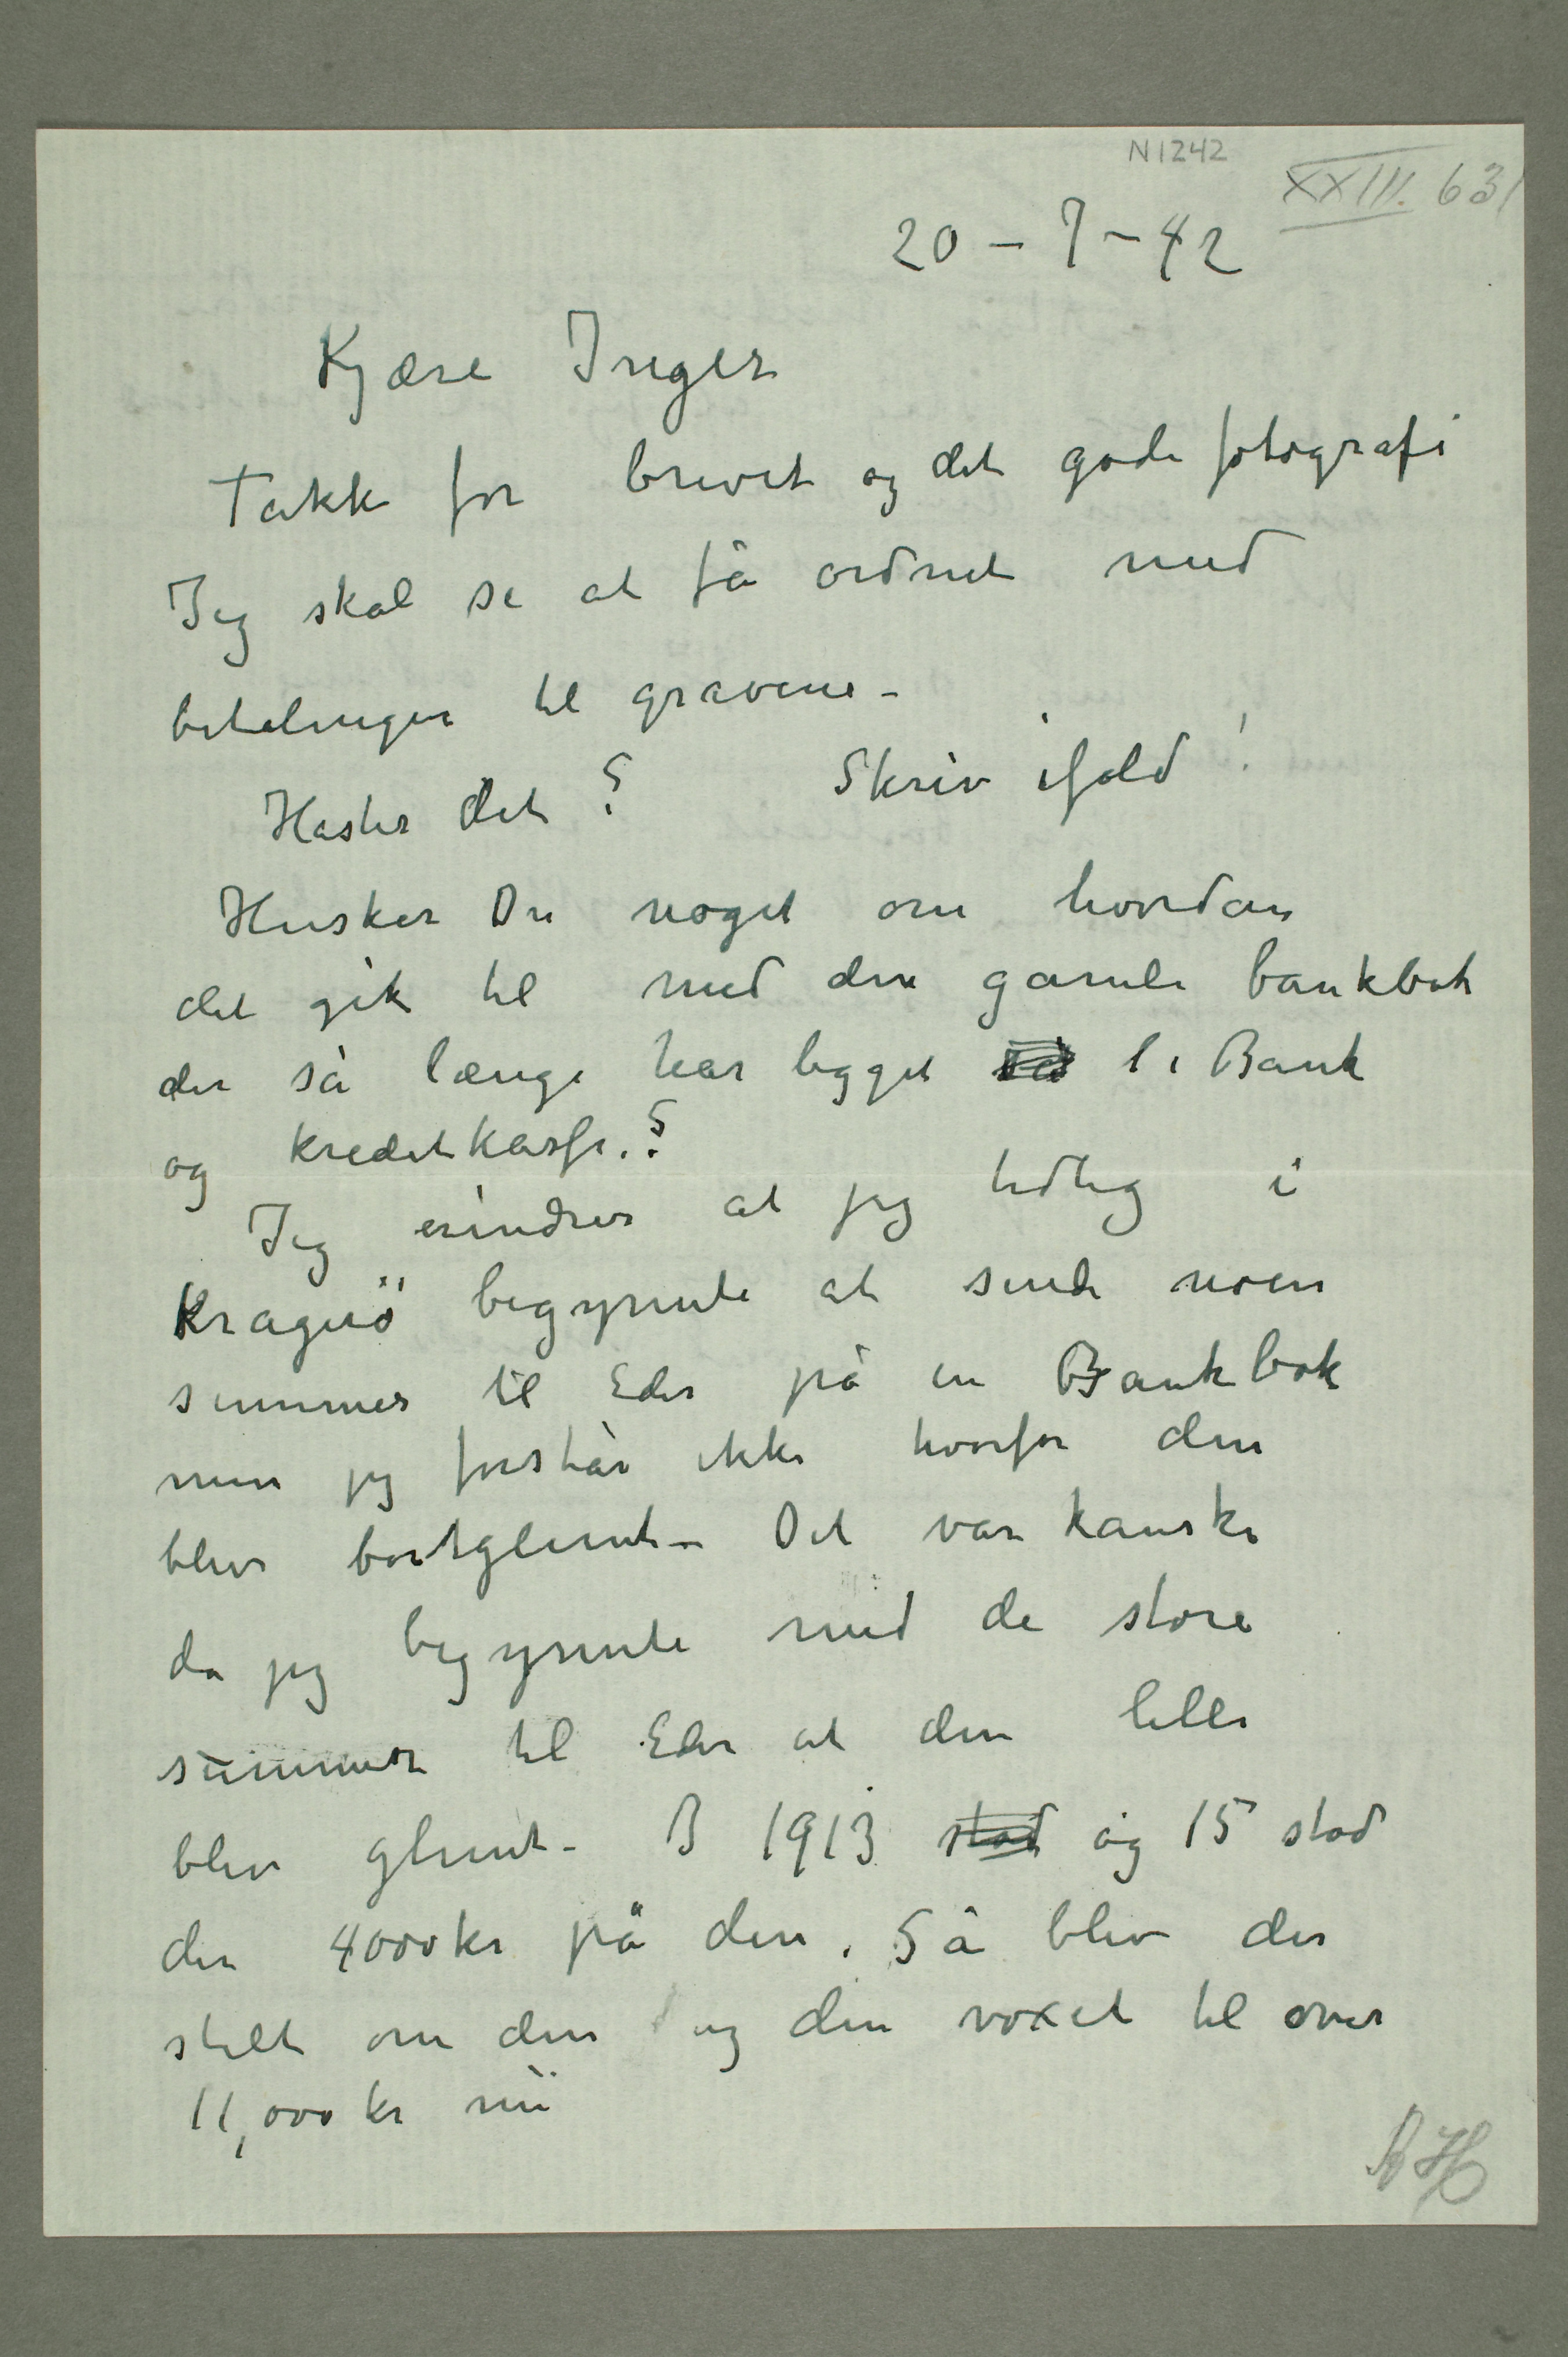 N1242
XXIII. 631
20 – 7 – 42
Kjære Inger
Takk for brevet og det gode fotografi
Jeg skal se at få ordnet med
betalinger til gravene –
Haster det? Skriv ifald!
Husker Du noget om hvordan
det gik til med den gamle bankbok
der så længe har ligget i Bank
og kreditkasse.?
Jeg erindrer at jeg tidlig i
Kragerö begynnte at sende noen
summer til Eder på en Bankbok
men jeg forstår ikke hvorfor den
blev bortglemt – Det var kanske
da jeg begynnte med de store
summer til Eder at den lille
blev glemt – I 1913 stod og 15 stod
der 4000 kr på den. Så blev der
stilt om den og den voxet til over
11,000 kr nu